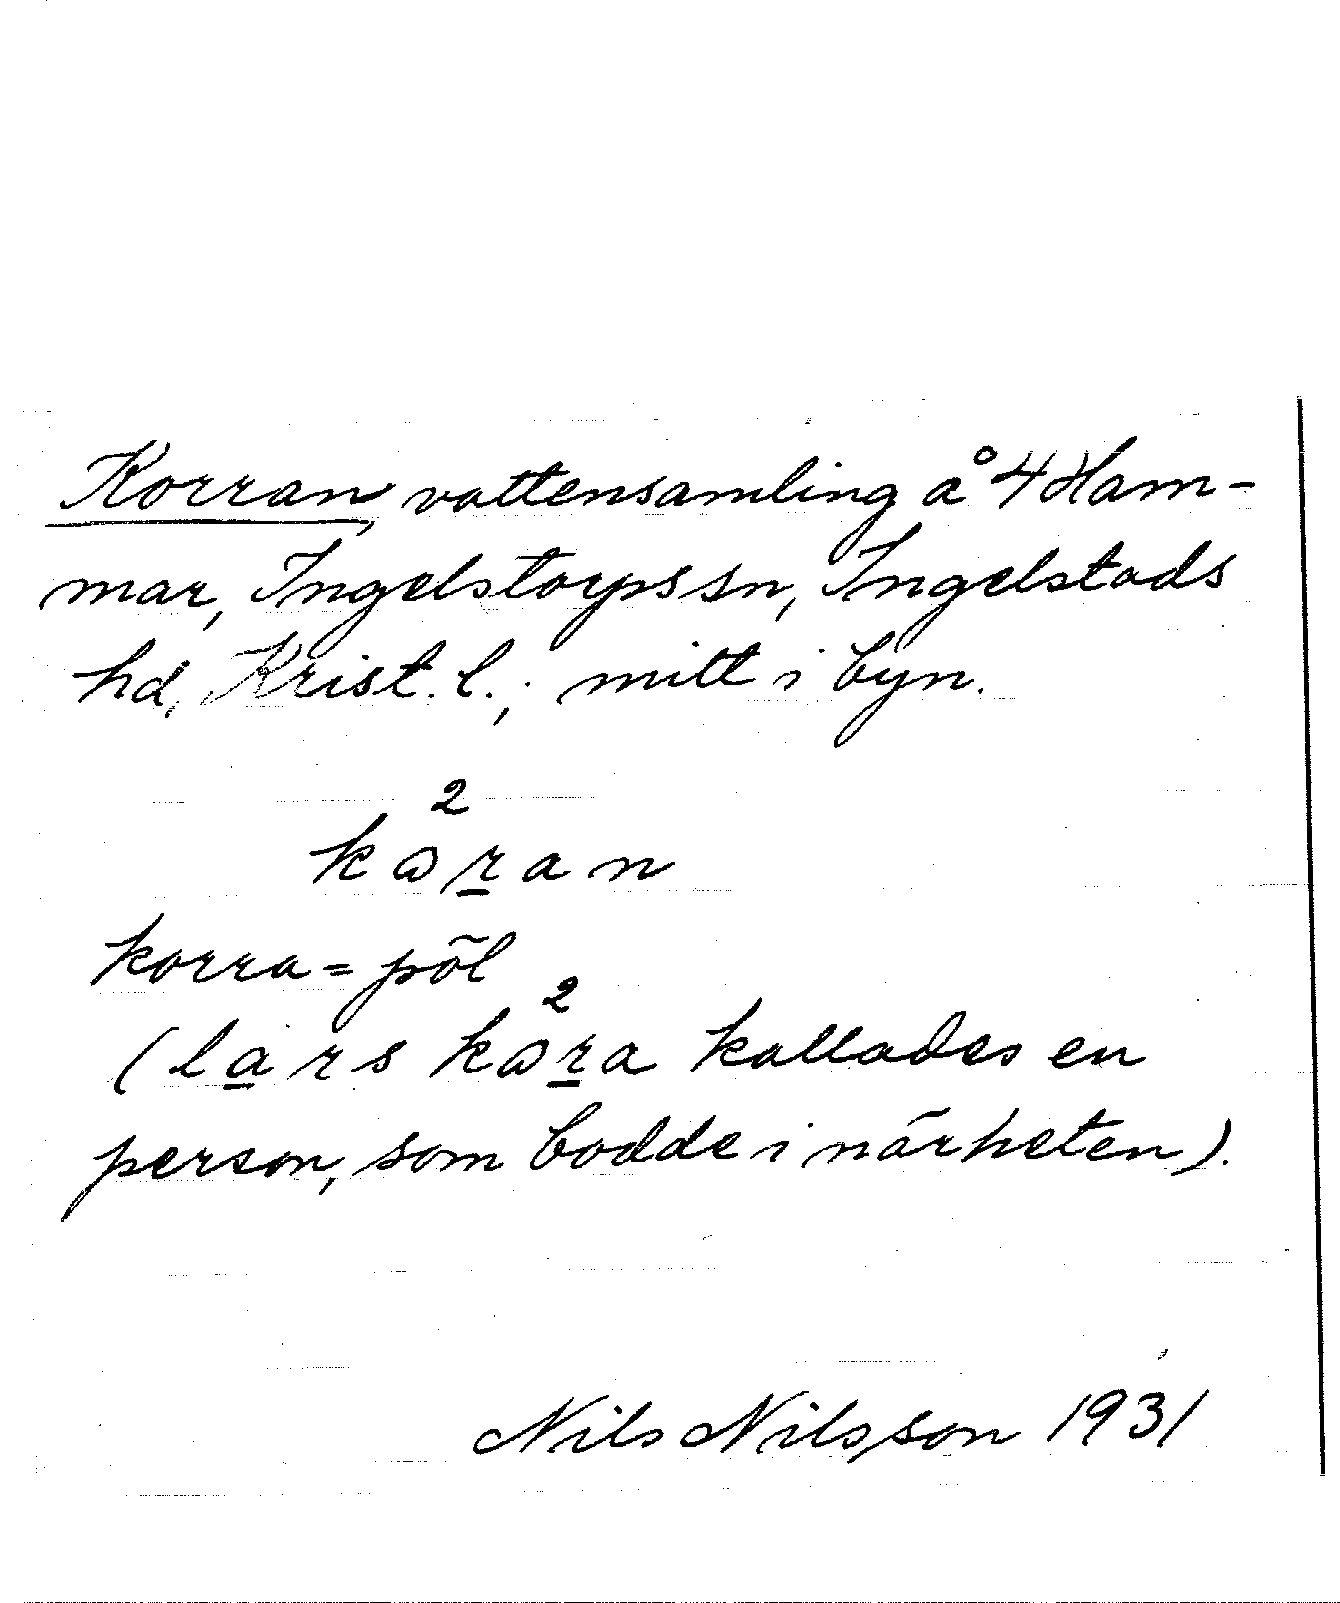 Korran, vattensamling å 4 Ham-
mar, Ingelstorps sn, Ingelstads
hd, Krist. l.; mitt i byn.
2
kɷr̲an
korra = pöl
2
(la̲rs kɷr̲a kallades en
person, som bodde i närheten).
Nils Nilsson 1931